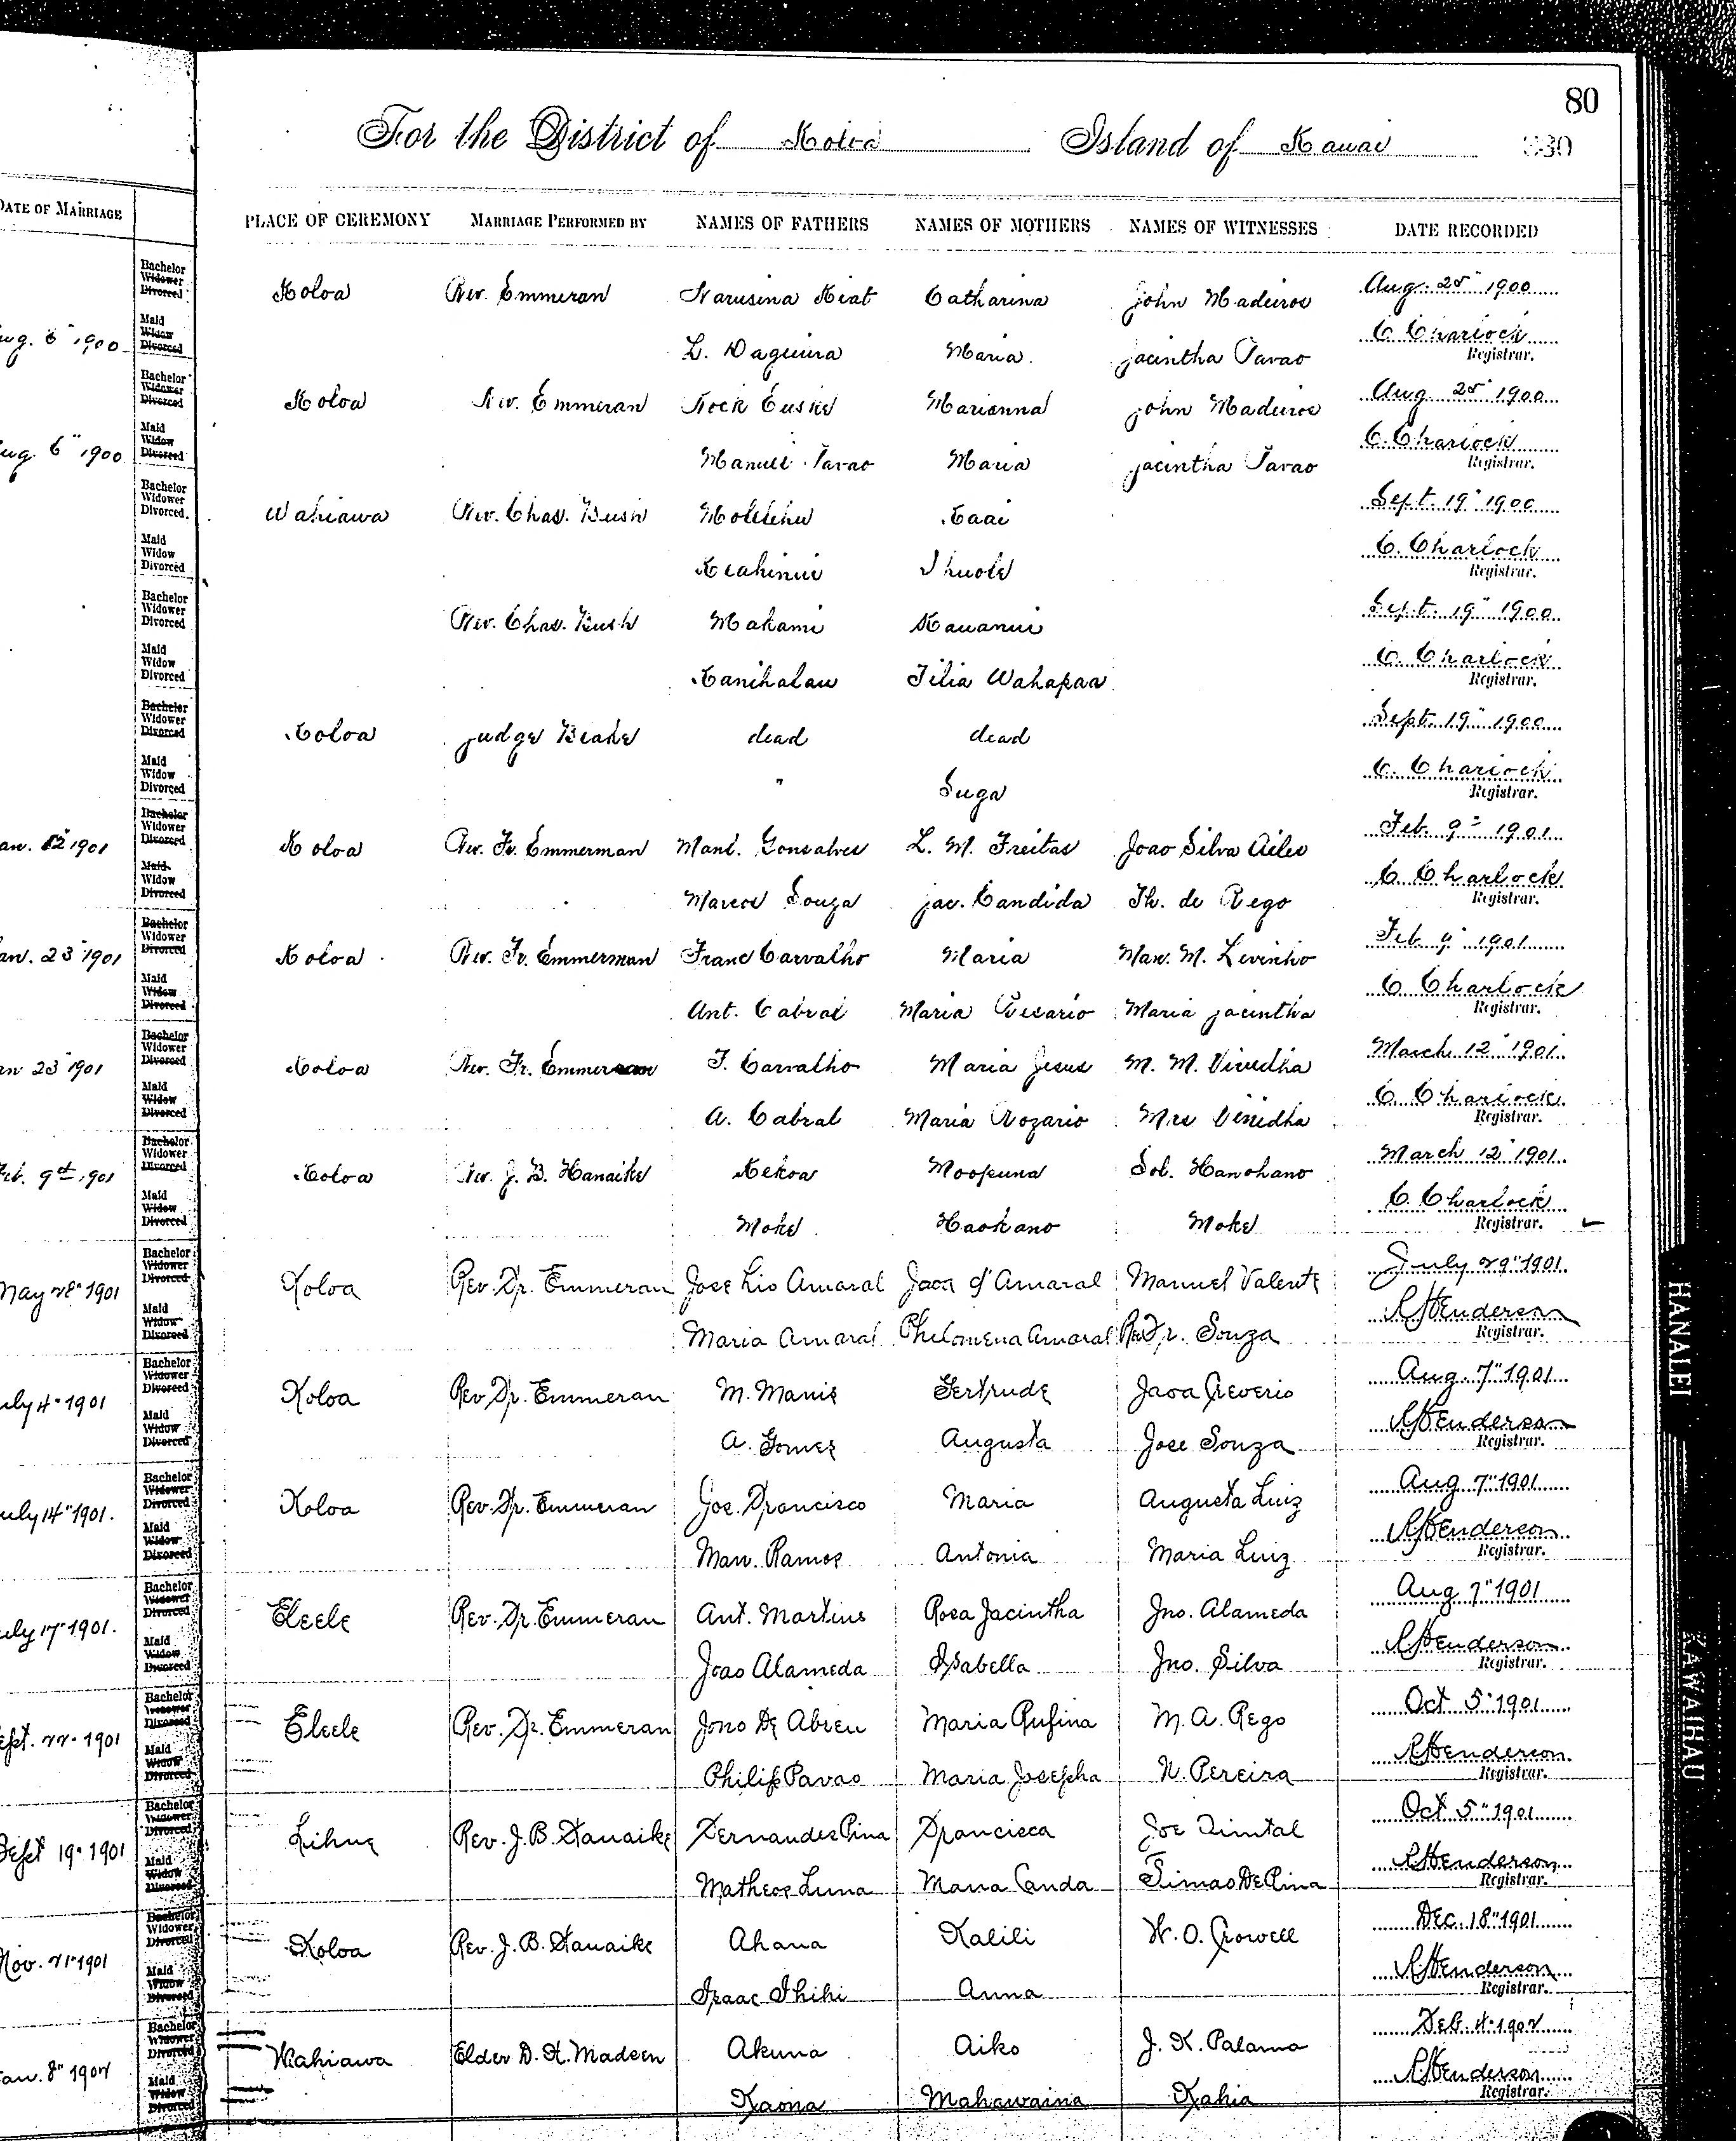 80
For the District of Koloa Island of Kauai 330
DATE OF MARRIAGE PLACE OF CEREMONY MARRIAGE PERFORMED BY NAMES OF FATHERS NAMES OF MOTHERS NAMES OF WITNESSES DATE RECORDED
Bachelor Widower Divorced Koloa Rev. Emmeran Catharina John Madeiros Aug. 25" 1900
ug. 6" 1900 Maid Widow Divorced L. Maria Jacintha Pavao C. Charlock Registrar.
Bachelor Widower Divorced Koloa Rev. Emmeran Marianna John Madeiros Aug. 25" 1900
ug. 6" 1900 Maid Widow Divorced Manuel Pavao Maria Jacintha Pavao C. Charlock Registrar.
Bachelor Widower Divorced. Wahiawa Rev. Chas. Kaai Sept. 19" 1900
Maid Widow Divorced C. Charlock Registrar.
Bachelor Widower Divorced Rev. Chas. Makami Kauanui Sept. 19" 1900
Maid Widow Divorced Kanihalau Tilia Wahapaa C. Charlock Registrar.
Bachelor Widower Divorced Koloa Judge dead dead Sept. 19" 1900
Maid Widow Divorced " Suga C. Charlock Registrar.
an. 12" 1901 Bachelor Widower Divorced Koloa Rev. Fr. Emmerman Manl. Gonsalves L. M. Freitas Joao Silva Feb. 9" 1901
Maid Widow Divorced Marcos Souza Jac. Candida Th. de Rego C. Charlock Registrar.
an. 23" 1901 Bachelor Widower Divorced Koloa Rev. Fr. Emmerman Franc Carvalho Maria Man. M. Levinho Feb. 9" 1901
Maid Widow Divorced Ant. Cabral Maria Maria Jacintha C. Charlock Registrar.
an 23" 1901 Bachelor Widower Divorced Koloa Rev. Fr. Emmeran F. Carvalho Maria Jesus M. M. March 12" 1901.
Maid Widow Divorced A. Cabral Maria Rozario Mrs C. Charlock Registrar.
eb. 9th 1901 Bachelor Widower Divorced Koloa Rev. J. B. Hanaike Kekoa Moopuna Sol. Hanohano March 12" 1901.
Maid Widow Divorced Moke Haokano Moke C. Charlock Registrar.
May 28" 1901 Bachelor Widower Divorced Koloa Rev. Fr. Emmeran Jose Lio Amaral Jaca d' Amaral Manuel Valente July 29" 1901.
Maid Widow Divorced Maria Amaral Philomena Amaral Rev Fr. Souza Henderson Registrar.
uly 4" 1901 Bachelor Widower Divorced Koloa Rev. Fr. Emmeran M. Manis Gertrude Aug. 7" 1901
Maid Widow Divorced A. Gomez Augusta Jose Souza Henderson Registrar.
uly 14" 1901. Bachelor Widower Divorced Koloa Rev. Fr. Emmeran Jos. Francisco Maria Augusta Luiz Aug 7" 1901
Maid Widow Divorced Man. Ramos Antonia Maria Luiz Henderson Registrar.
uly 17" 1901. Bachelor Widower Divorced Eleele Rev. Fr. Emmeran Ant. Martins Rosa Jacintha Jno. Alameda Aug 7" 1901
Maid Widow Divorced Joao Alameda Isabella Jno. Silva Henderson Registrar.
ept. 22" 1901 Bachelor Widower Divorced Eleele Rev. Fr. Emmeran Jono De Abreu Maria Rufina M. A. Rego Oct 5" 1901
Maid Widow Divorced Philip Pavao Maria Josepha N. Pereira Henderson Registrar.
Sept 19" 1901 Bachelor Widower Divorced Lihue Rev. J. B. Hanaike Fernandes Pina Francisca Joe Oct 5" 1901
Maid Widow Divorced Matheos Luna Maria Canda Simao De Pina Henderson Registrar.
Nov. 21" 1901 Bachelor Widower Divorced Koloa Rev. J. B. Hanaike Ahana Kalili W. O. Crowell Dec. 18" 1901
Maid Widow Divorced Isaac Ihihi Anna Henderson Registrar.
an. 8" 1902 Bachelor Widower Divorced Wahiawa Elder D. H. Madsen Akuna Aiko J. K. Palama Feb. 4" 1902
Maid Widow Divorced Kaona Mahawaina Kahia Henderson Registrar.
HANALEI
KAWAIHAU